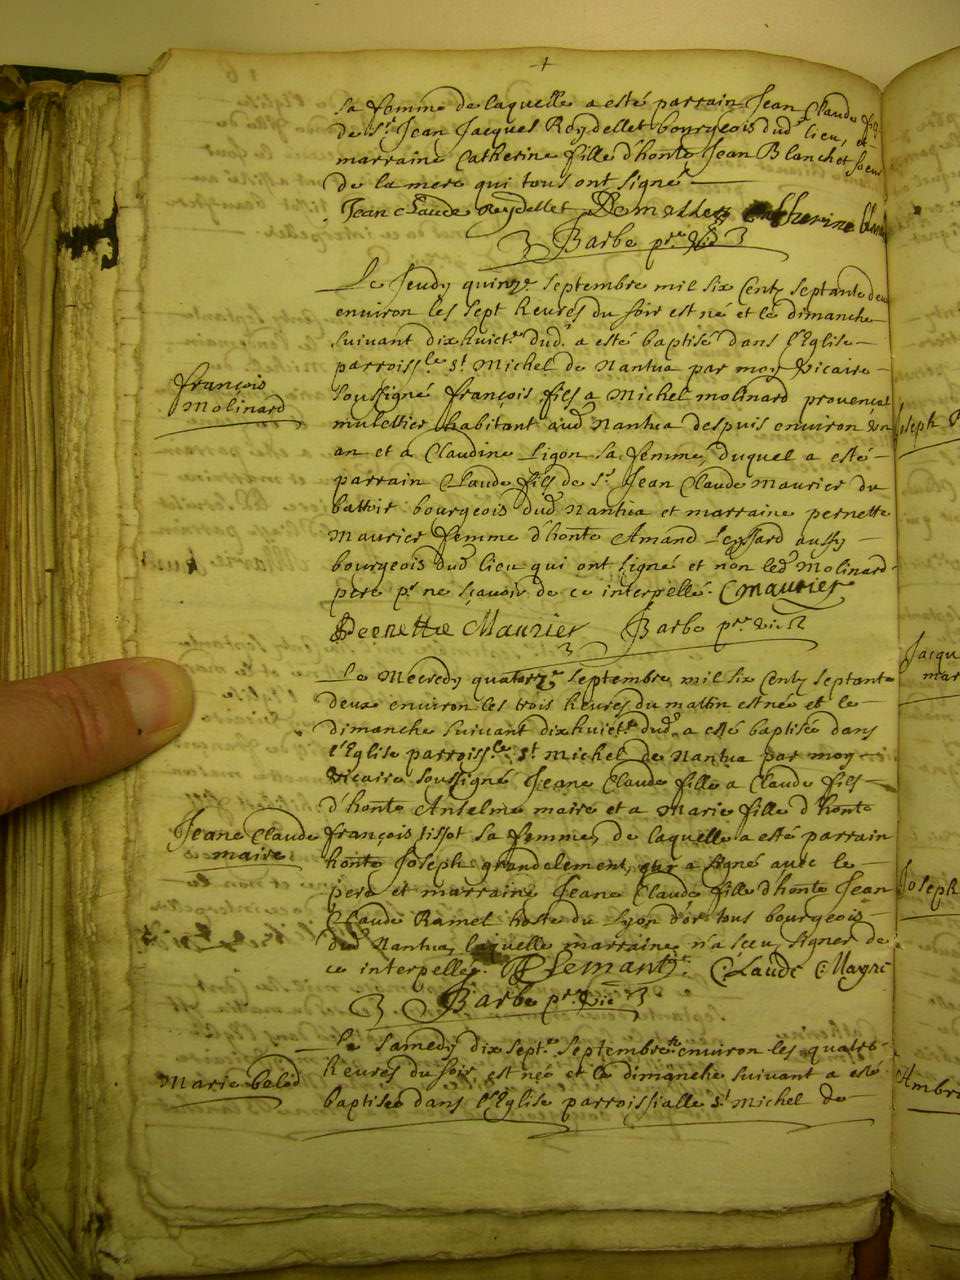 sa femme de laquelle a esté parrain Jean Claude fils
de Sr. Jean Jacques Reydellet bourgeois dud. lieu, et
marraine Catherine fille d'honte Jean Blanchet soeur
de la mere qui tous ont signé
Jean Claude Reydellet Catherine
Barbe pre. vic
Le Jeudy quinze Septembre mil six Centz septante deux
environ les sept heures du soir est né et le dimanche
suivant dixhuict.e dud. a esté baptisé dans l'Eglise
parroiss.le St Michel de Nantua par moy Vicaire
soussigné françois fils a Michel molinard provençal
mulettier habitant aud. Nantua despuis environ un
an et a Claudine Ligon sa femme, duquel a esté
parrain Claude fils de Sr. Jean Claude Maurier du
battoir bourgeois dud. Nantua et marraine pernette
Maurier femme d'honte Amand aussy
bourgeois dud. lieu qui ont signé et non led. Molinard
pere pr. ne sçavoir de ce interpellé. C maurier
françois
Molinard
Peernette Maurier Barbe pre. vic
Le Mecredy quatorze Septembre mil six Centz septante
deux environ les trois heures du matin est née et le
dimanche suivant dixhuict.e dud. a esté baptisée dans
l'Eglise parroiss.le St Michel de Nantua par moy
Vicaire soussigné Jeane Claude fille a Claude fils
d'honte Antelme maire et a Marie fille d'honte
françois tissot sa femme, de laquelle a esté parrain
honte Joseph grandclement, qui a signé avec le
pere et marraine Jeane Claude fille d'honte Jean
Claude Ramel hoste du Lyon d'or tous bourgeois
dud. Nantua, laquelle marraine n'a sceu signer de
ce interpellée. Claude Mayre
Jeane Claude
maire
Barbe pre. vic
Le Samedy dix sept.e Septembre environ les quatre
heures du soir est née et le dimanche suivant a esté
baptisée dans l'Eglise parroissialle St Michel de
Marie